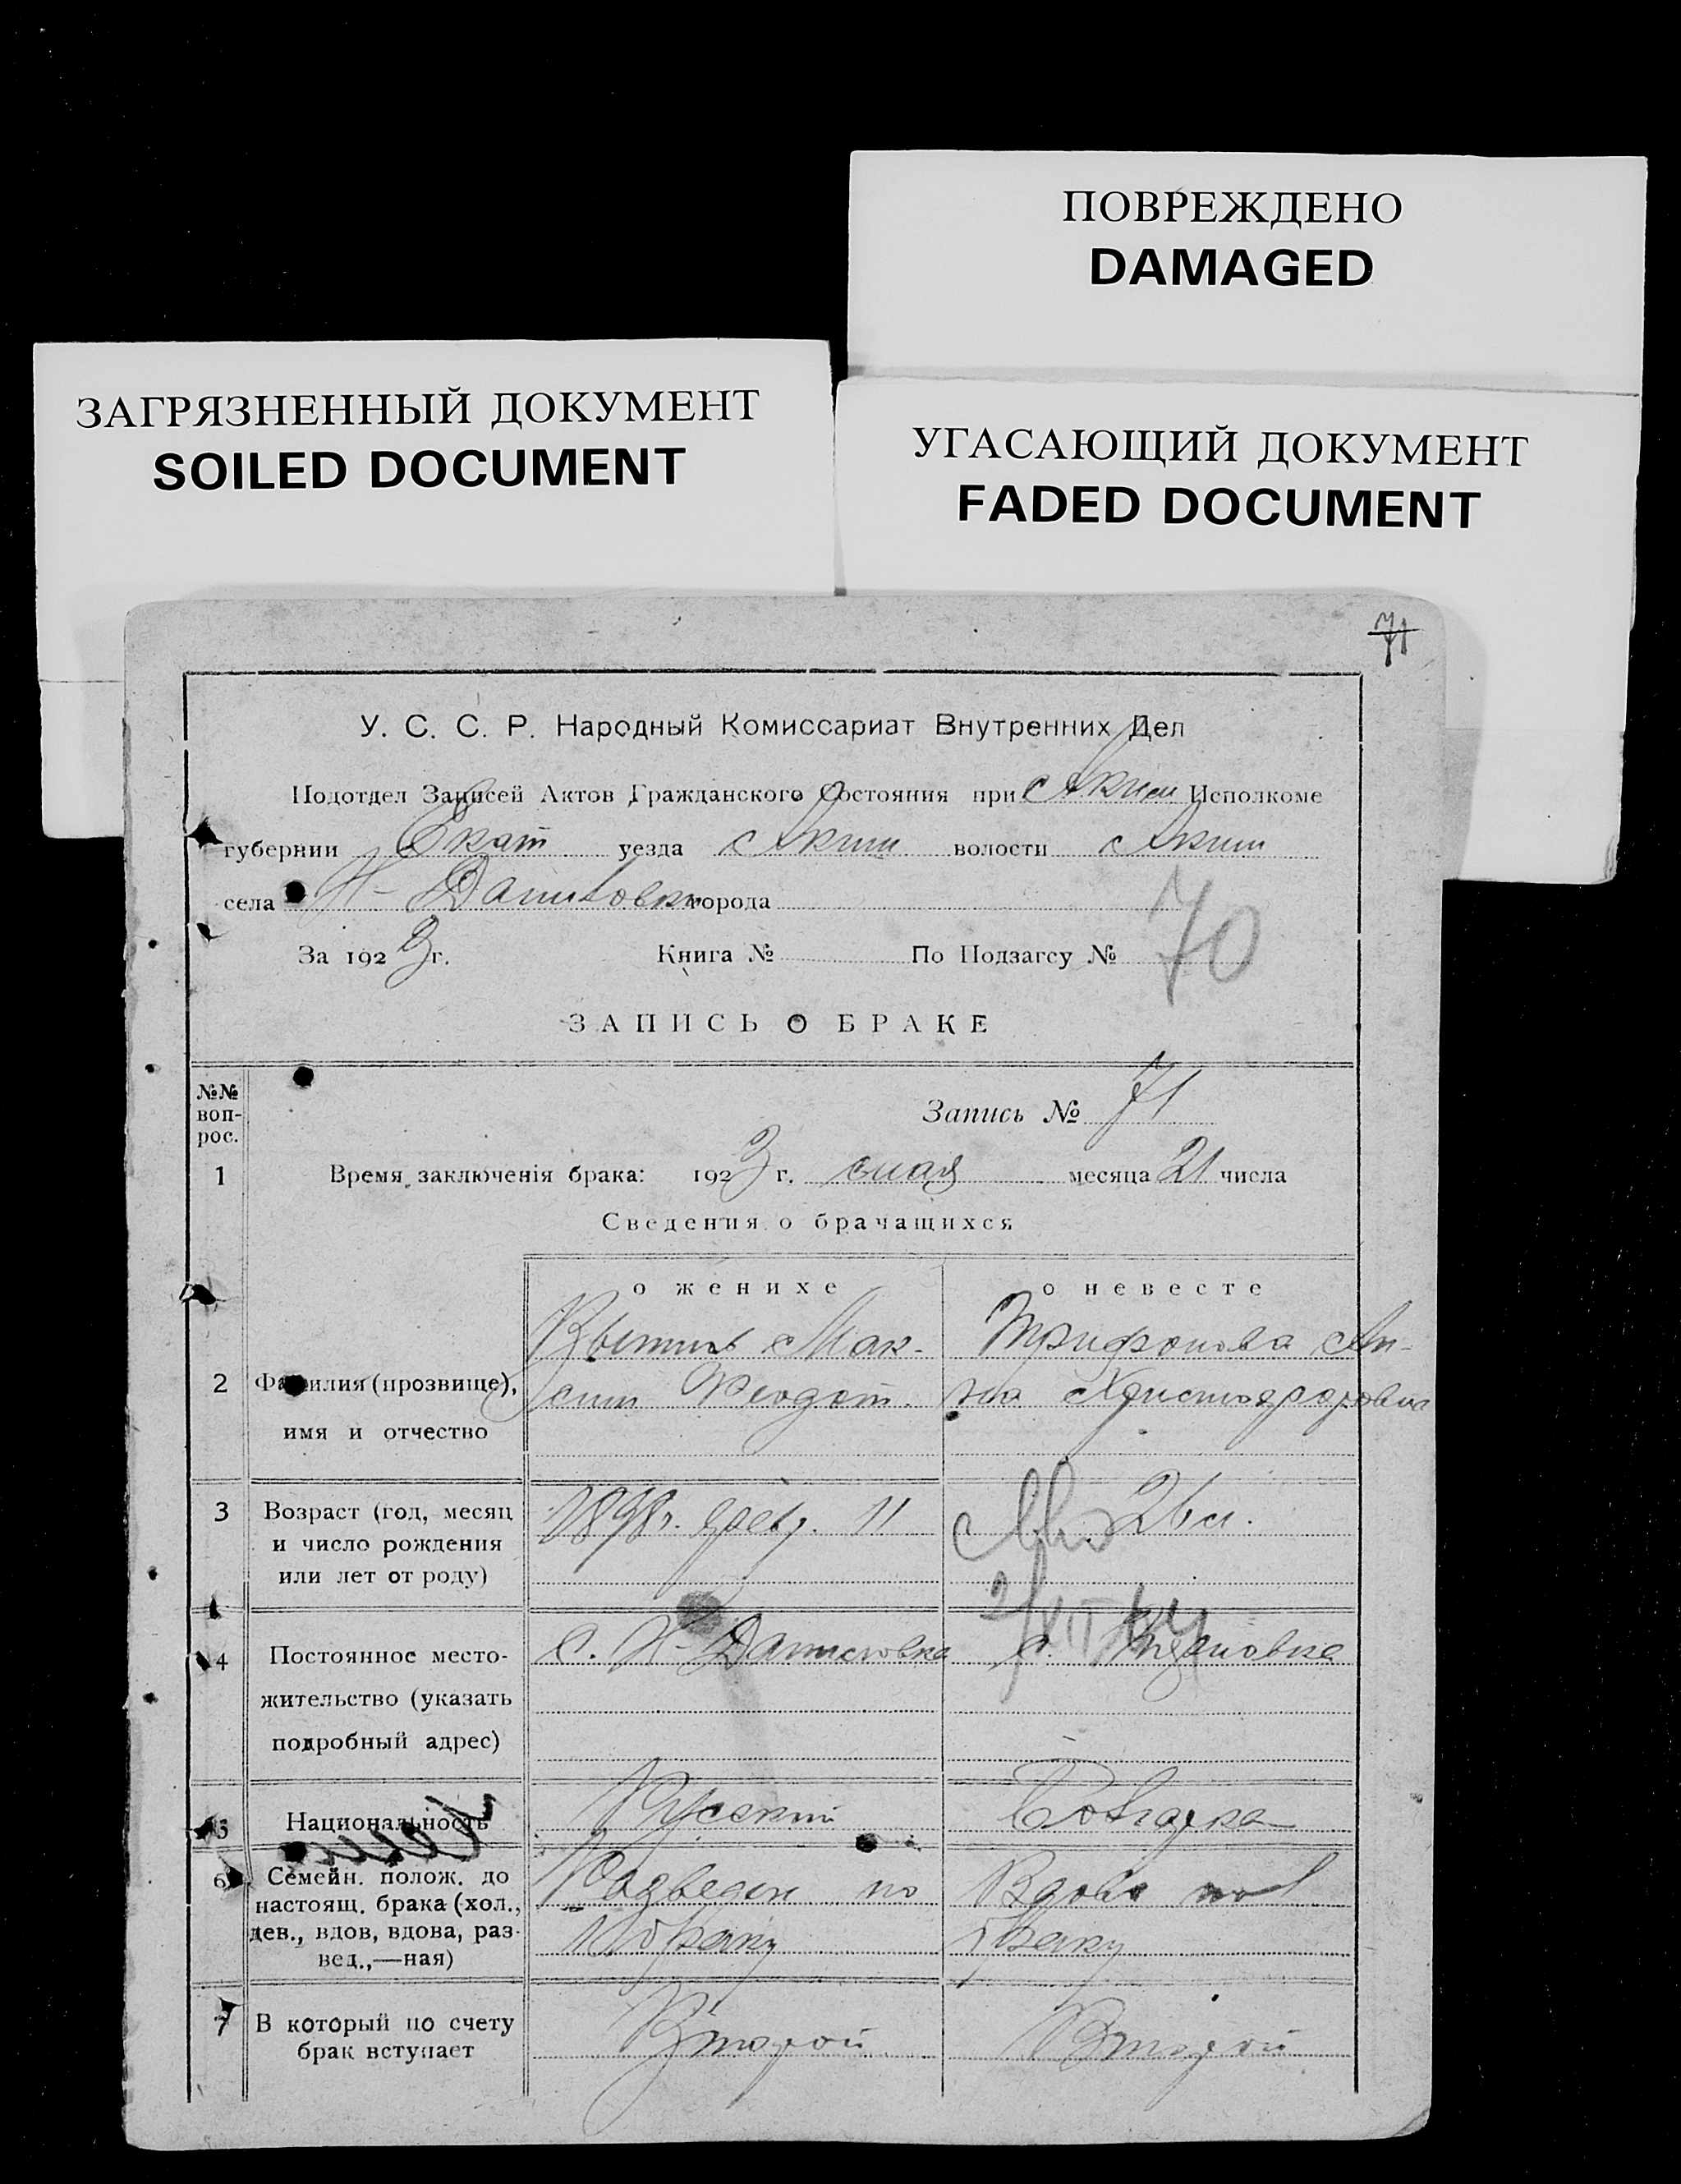 ПОВРЕЖДЕНО
DAMAGED
ЗАГРЯЗНЕННЫЙ ДОКУМЕНТ
SOILED DOCUMENT
УГАСАЮЩИЙ ДОКУМЕНТ
FADED DOCUMENT
71
У. С. С. Р. Народный Комиссариат Внутренних Дел
Подотдел Записей Актов Гражданского Состояния при Аким Исполкоме
губернии Екат уезда Аким волости Аким
села Н-Даниловка города
За 1923 г. Книга № По Подзагсу № 70
ЗАПИСЬ О БРАКЕ
№№ воп-рос.
Запись № 71
1 Время заключенiя брака: 1923 г. мая месяца 21 числа
Сведения о брачащихся
о женихе о невесте
Мак- Трифонова Ан-
2 Фамилия (прозвище), сим Феодот. на Христофоровна
имя и отчество
3 Возраст (год, месяц 1898 г. февр. 11
и число рождения
или лет от роду)
4 Постоянное место- с. Н-Даниловка с.
жительство (указать
подробный адрес)
5 Национальность Русский Болгарка
6 Семейн. полож. до Разведен по Вдова по
настоящ. брака (хол., 1 браку браку
дев., вдов, вдова, раз-
вед.,—ная)
7 В который по счету Второй Второй
брак вступает